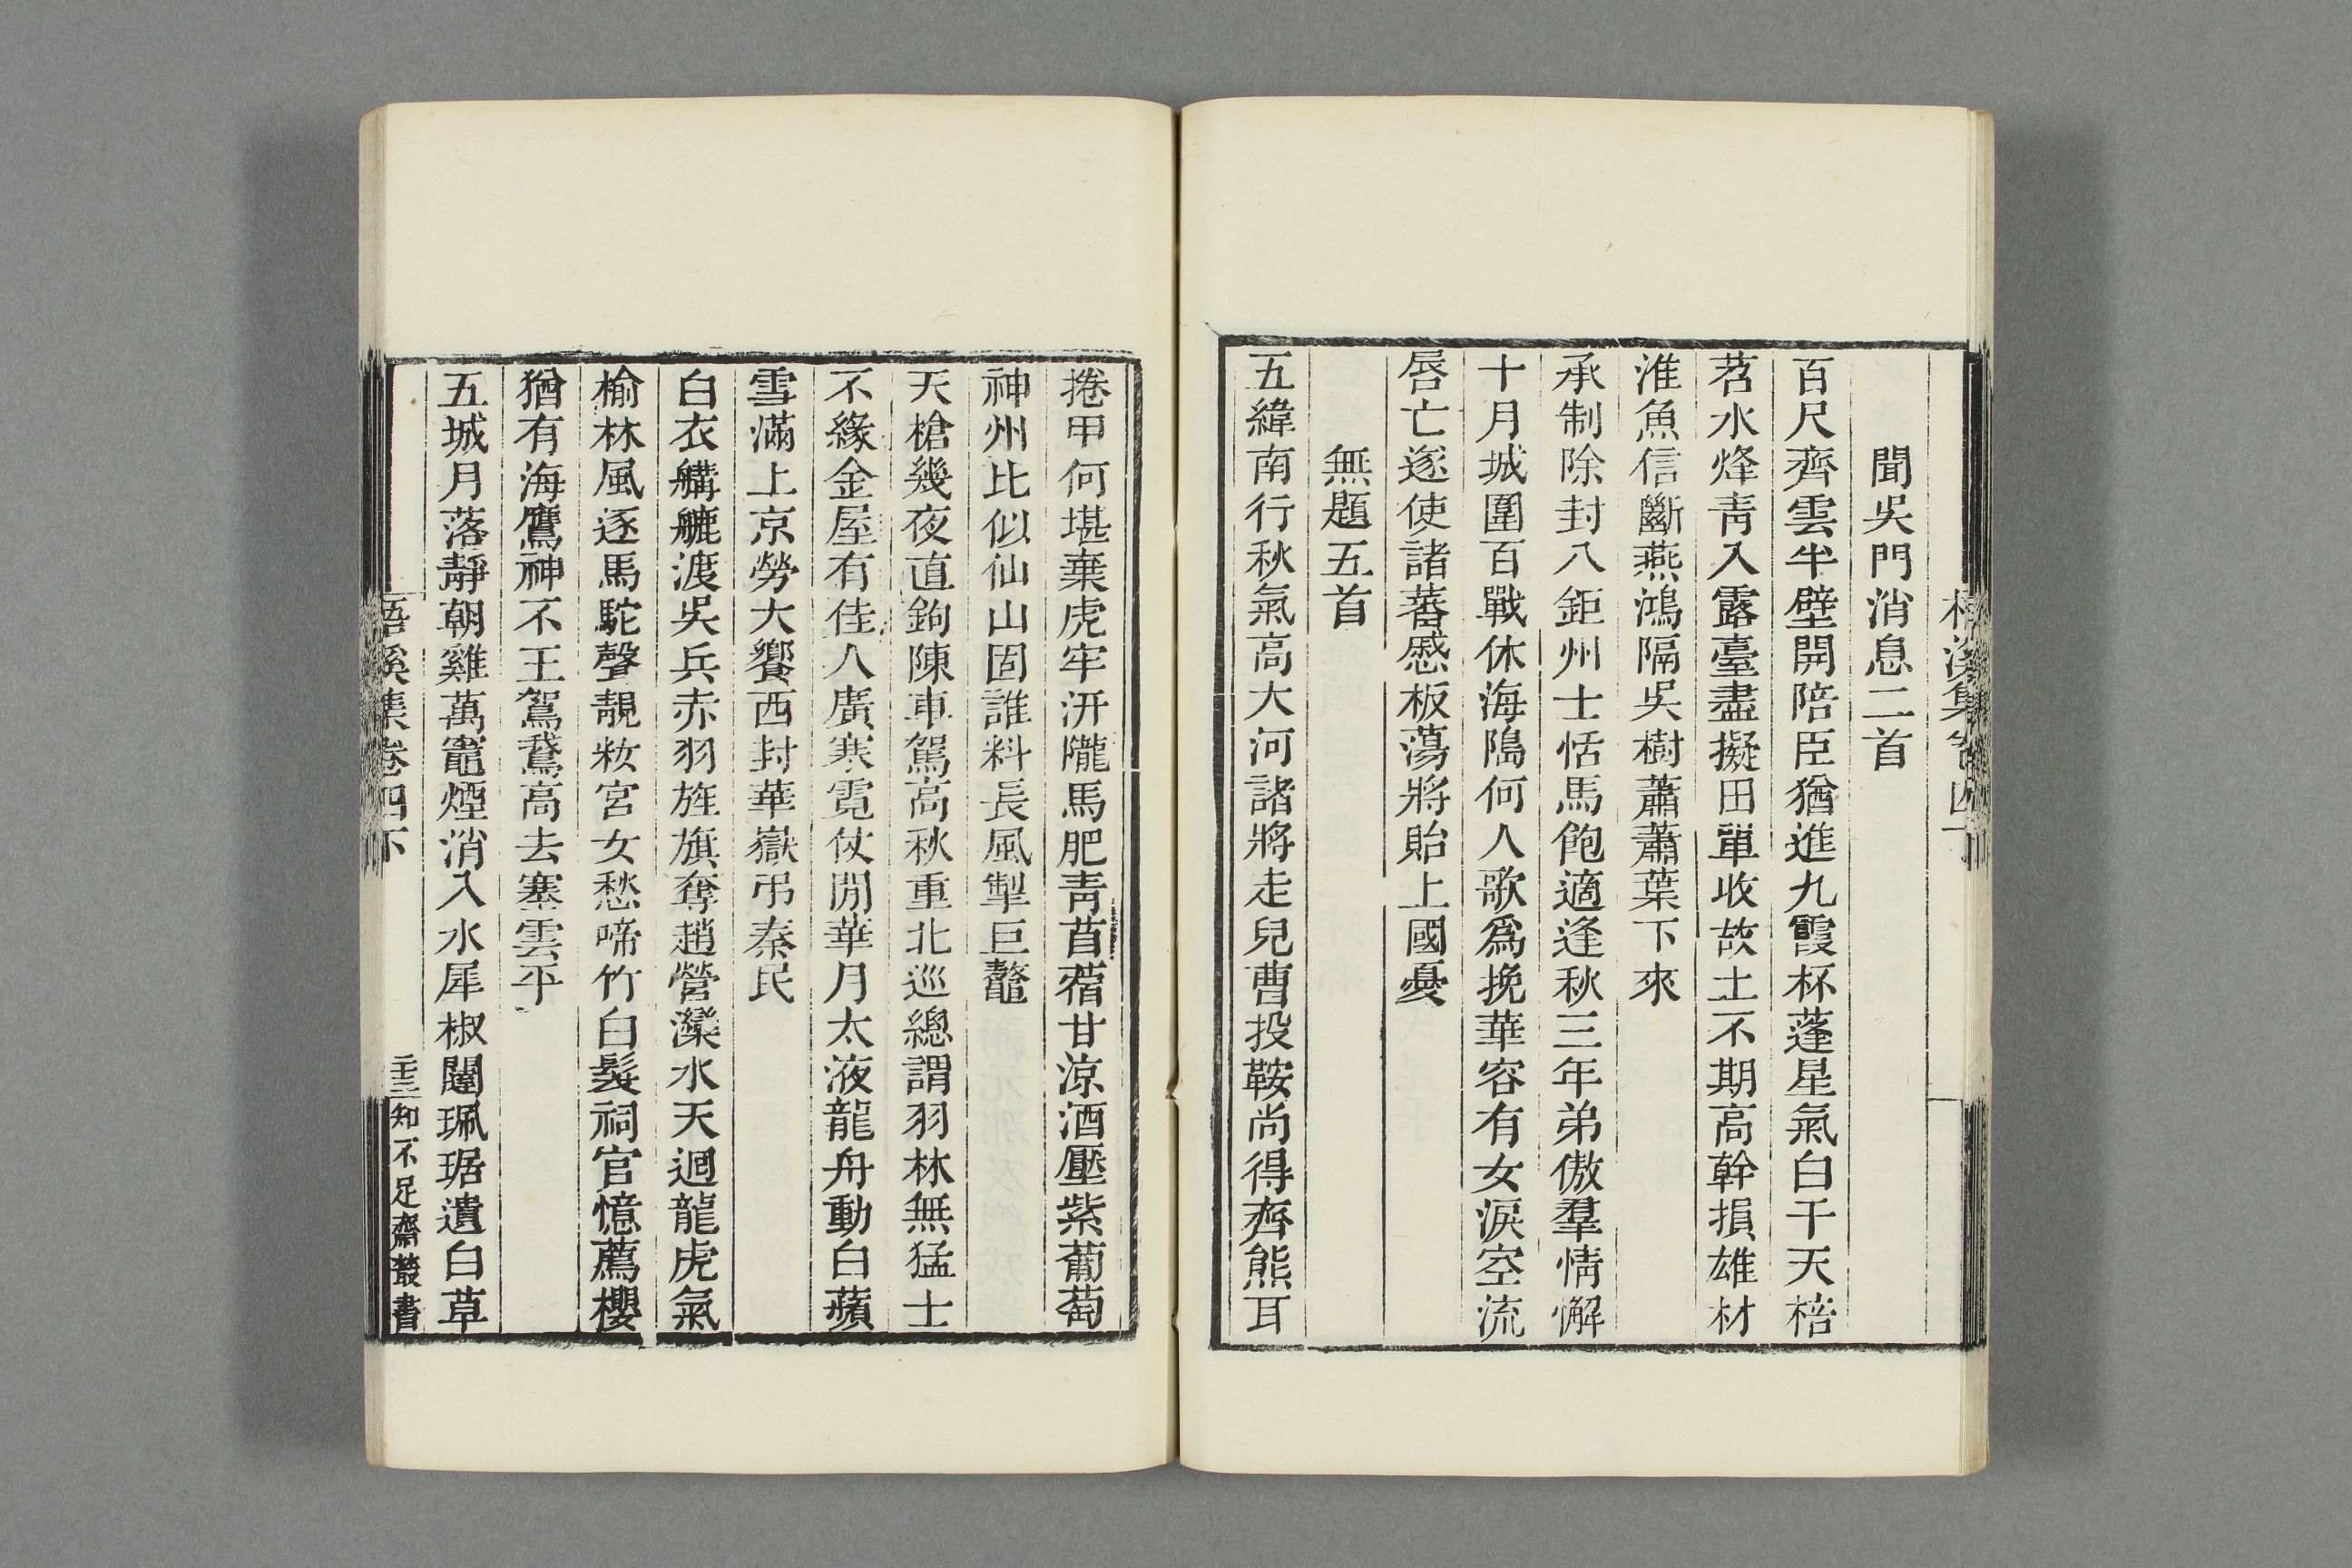 聞吳門消息二首
百尺齊雲半壁開陪臣猶進九霞杯蓬星氣白干天棓
苕水烽青入露臺盡擬田單收故土不期高幹損雄材
淮魚信斷燕鴻隔吳樹蕭蕭葉下來
承制除封八鉅州士恬馬飽適逢秋三年弟傲羣情懈
十月城圍百戰休海隝何人歌爲挽華容有女淚空流
唇亡遂使諸蕃慼板蕩將貽上國憂
無題五首
五緯南行秋氣高大河諸將走兒曹投鞍尚得齊熊耳
捲甲何堪棄虎牢汧隴馬肥青苜蓿甘涼酒壓紫葡萄
神州比似仙山固誰料長風掣巨鼇
天槍幾夜直鉤陳車駕高秋重北巡總謂羽林無猛士
不緣金屋有佳人廣寒霓仗閒華月太液龍舟動白蘋
雪滿上京勞大饗西封華嶽弔秦民
白衣艣艫渡吳兵赤羽旌旗奪趙營灤水天迴龍虎氣
榆林風逐馬駝聲靚妝宮女愁啼竹白髮祠官憶薦櫻
猶有海鷹神不王駕鵞高去塞雲平
五城月落靜朝雞萬竈煙消入水犀椒闥珮琚遺白草
梧溪集卷四下
知不足齋叢書